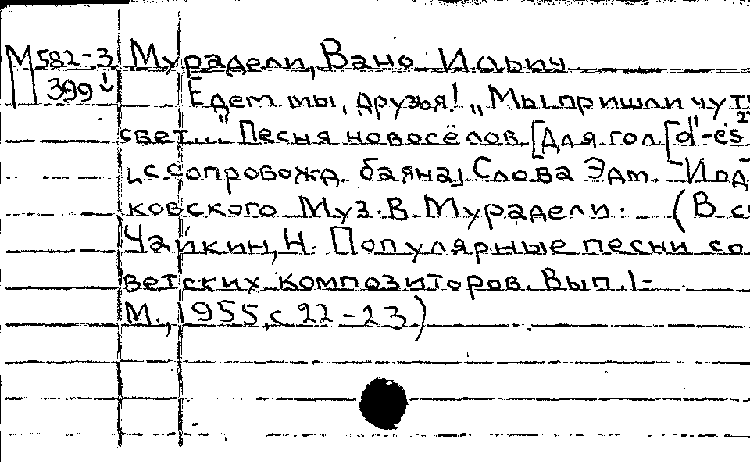 М 582-3 Мурадели, Вано Ильич
399 Едем мы, друзья! „Мы пришли чуть
свет..." Песня новосёлов. [Для гол[d'-es
и с сопровожд. баяна] Слова Эдм. Иод
ковского Муз. В. Мурадели. (В с
Чайкин, Н. Популярные песни со
ветских композиторов. Вып. 1-
М., 1955, с 22-23.)